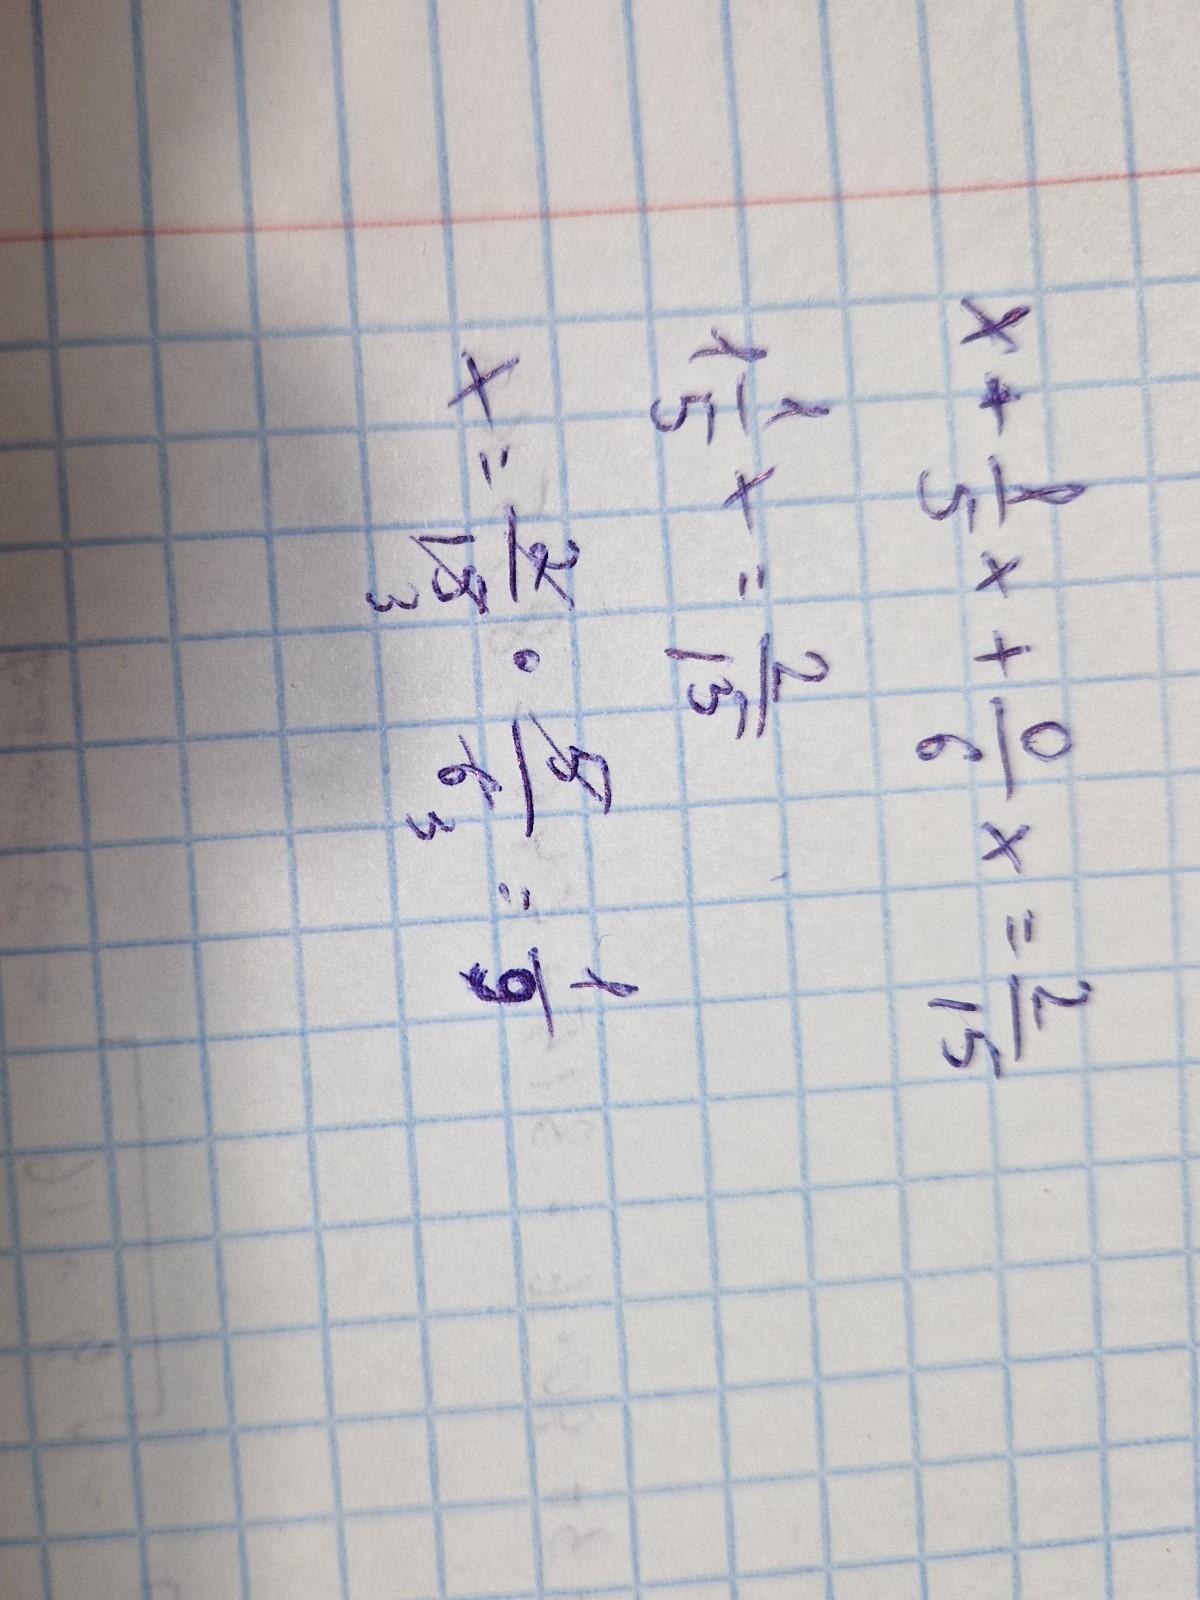 x + 1/5 x + 0/6 x = 2/15
1 1/5 x = 2/15
x = 2/15 3 · 5/6 3 = 1/9